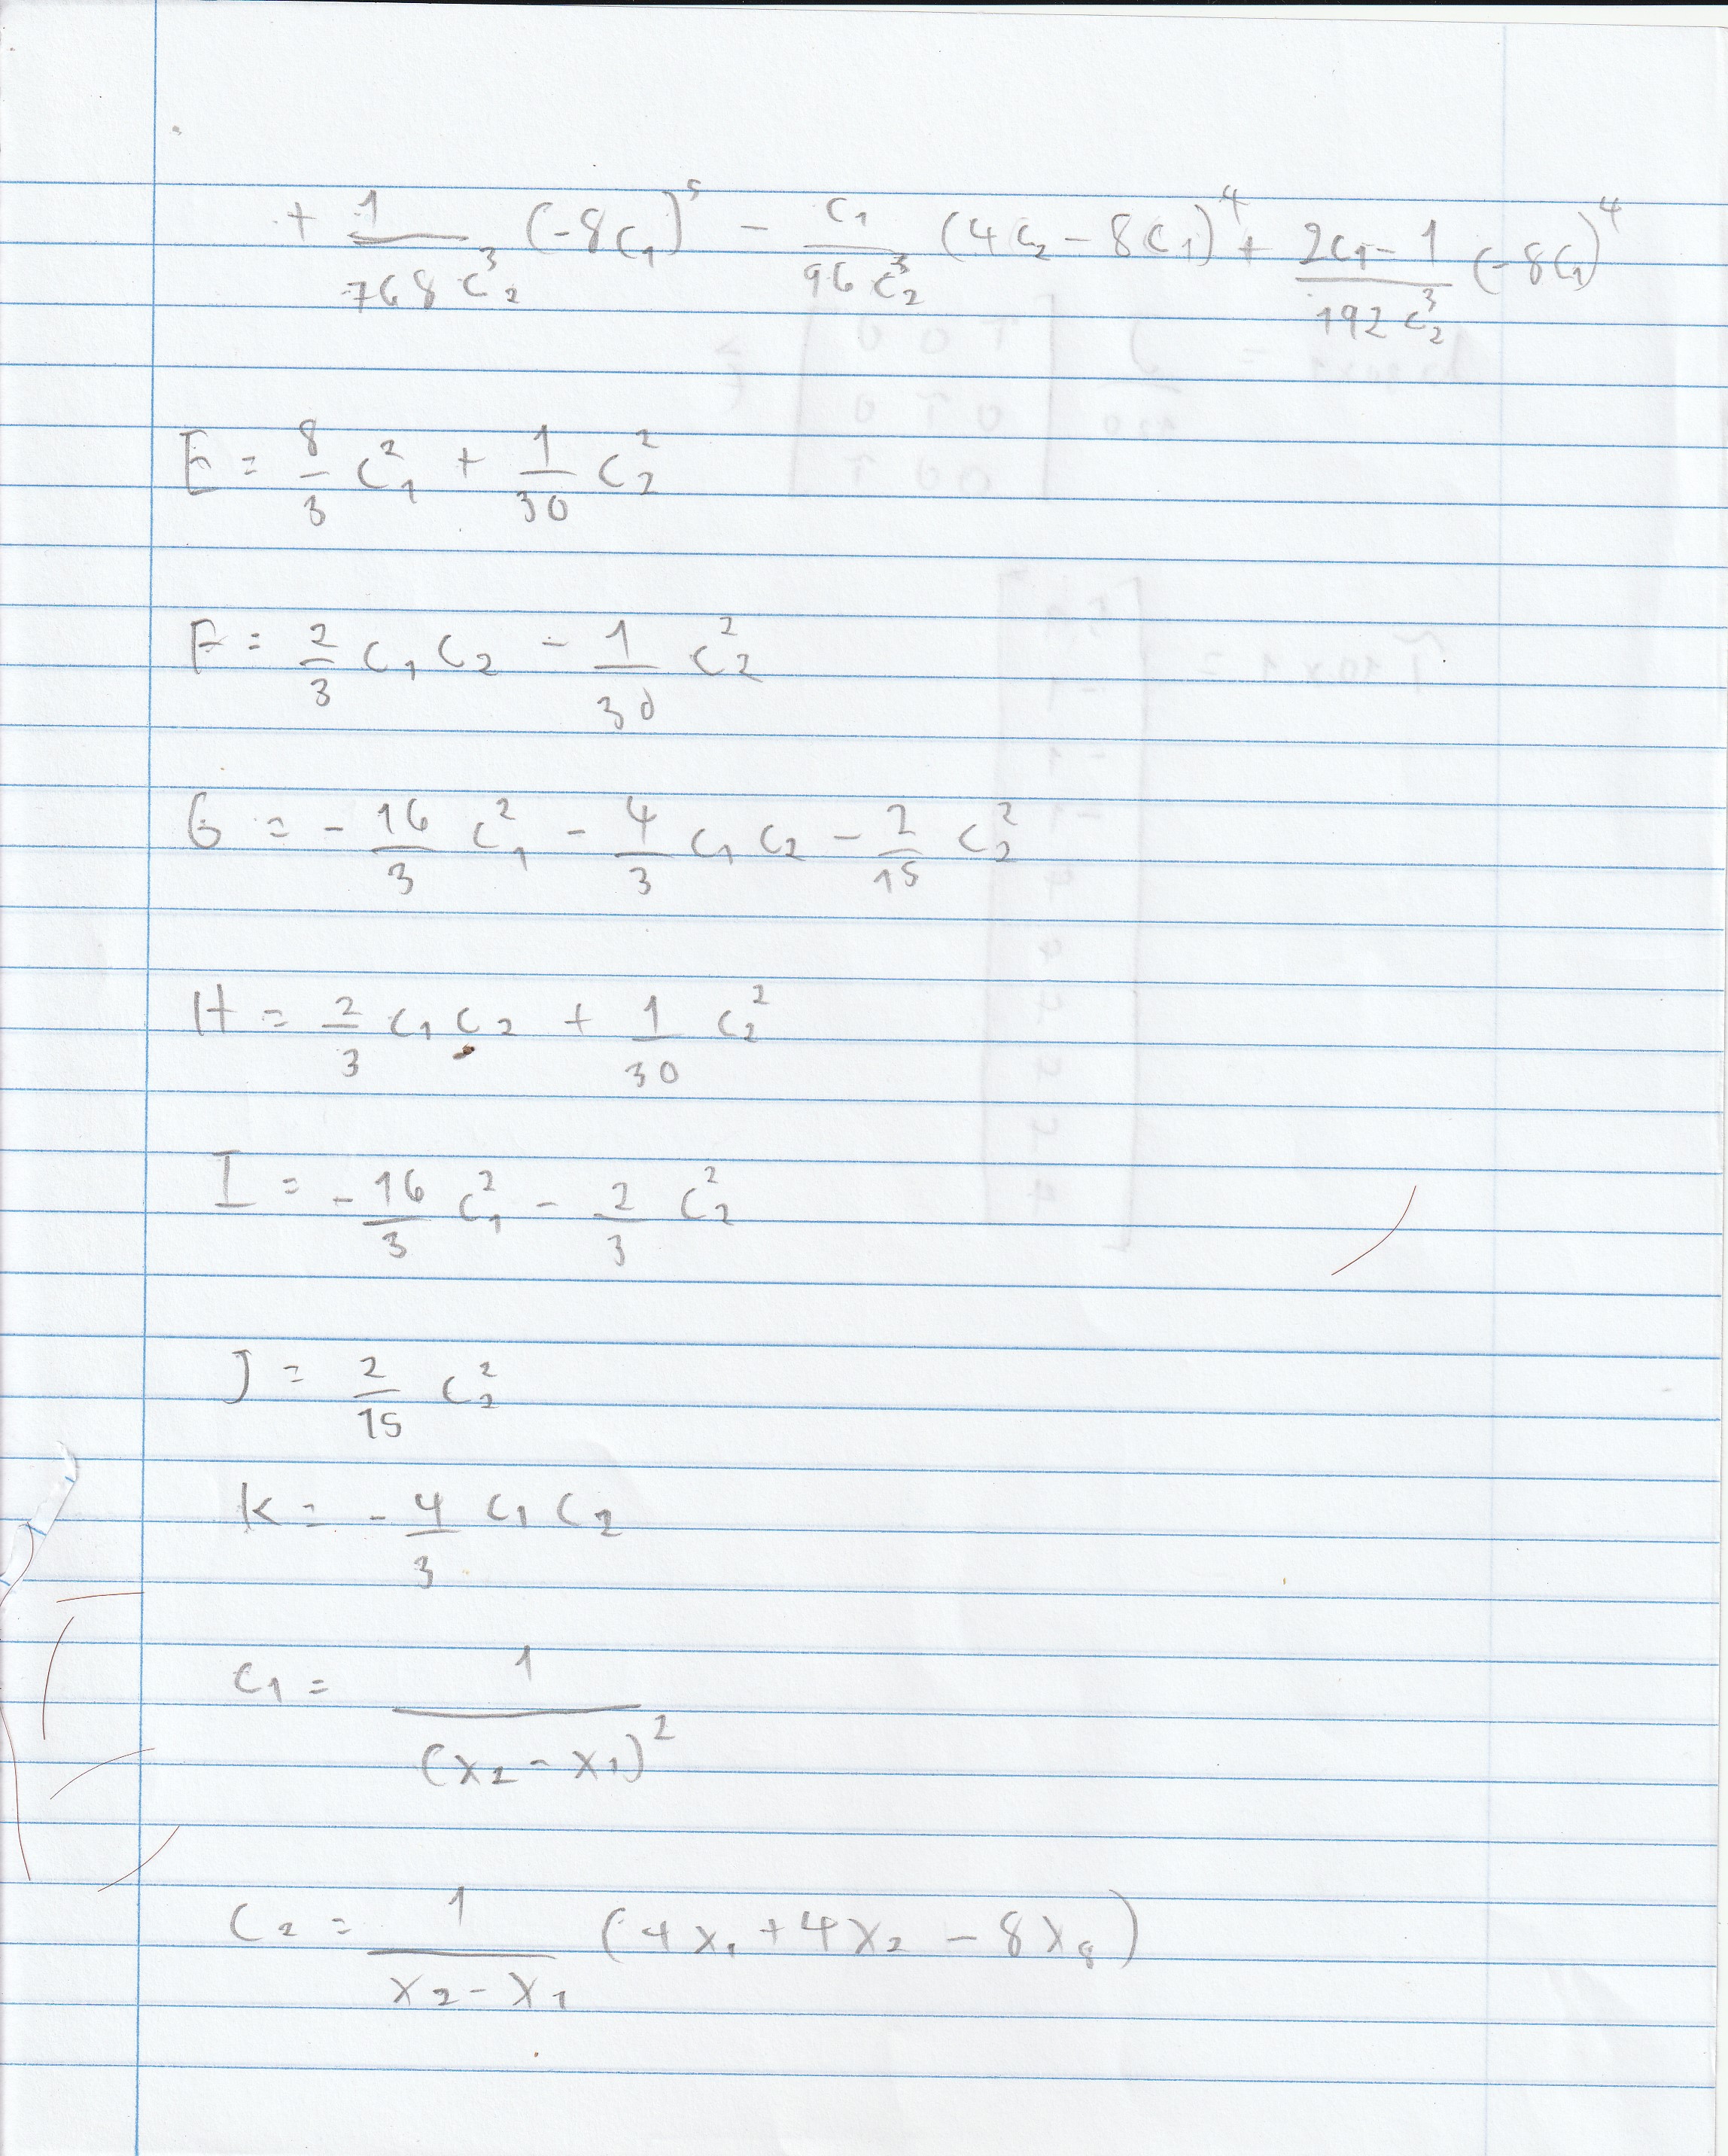 + 1/(768 c₂³) (-8c₁)⁵ - c₁/(96 c₂³) (4c₂ - 8c₁)⁴ + (2c₁ - 1)/(192 c₂³) (-8c₁)⁴
E = 8/3 c₁² + 1/30 c₂²
F = 2/3 c₁ c₂ - 1/30 c₂²
G = - 16/3 c₁² - 4/3 c₁ c₂ - 2/15 c₂²
H = 2/3 c₁ c₂ + 1/30 c₂²
I = - 16/3 c₁² - 2/3 c₂²
J = 2/15 c₂²
K = - 4/3 c₁ c₂
c₁ = 1/(x₂ - x₁)²
c₂ = 1/(x₂ - x₁) (4x₁ + 4x₂ - 8x₈)